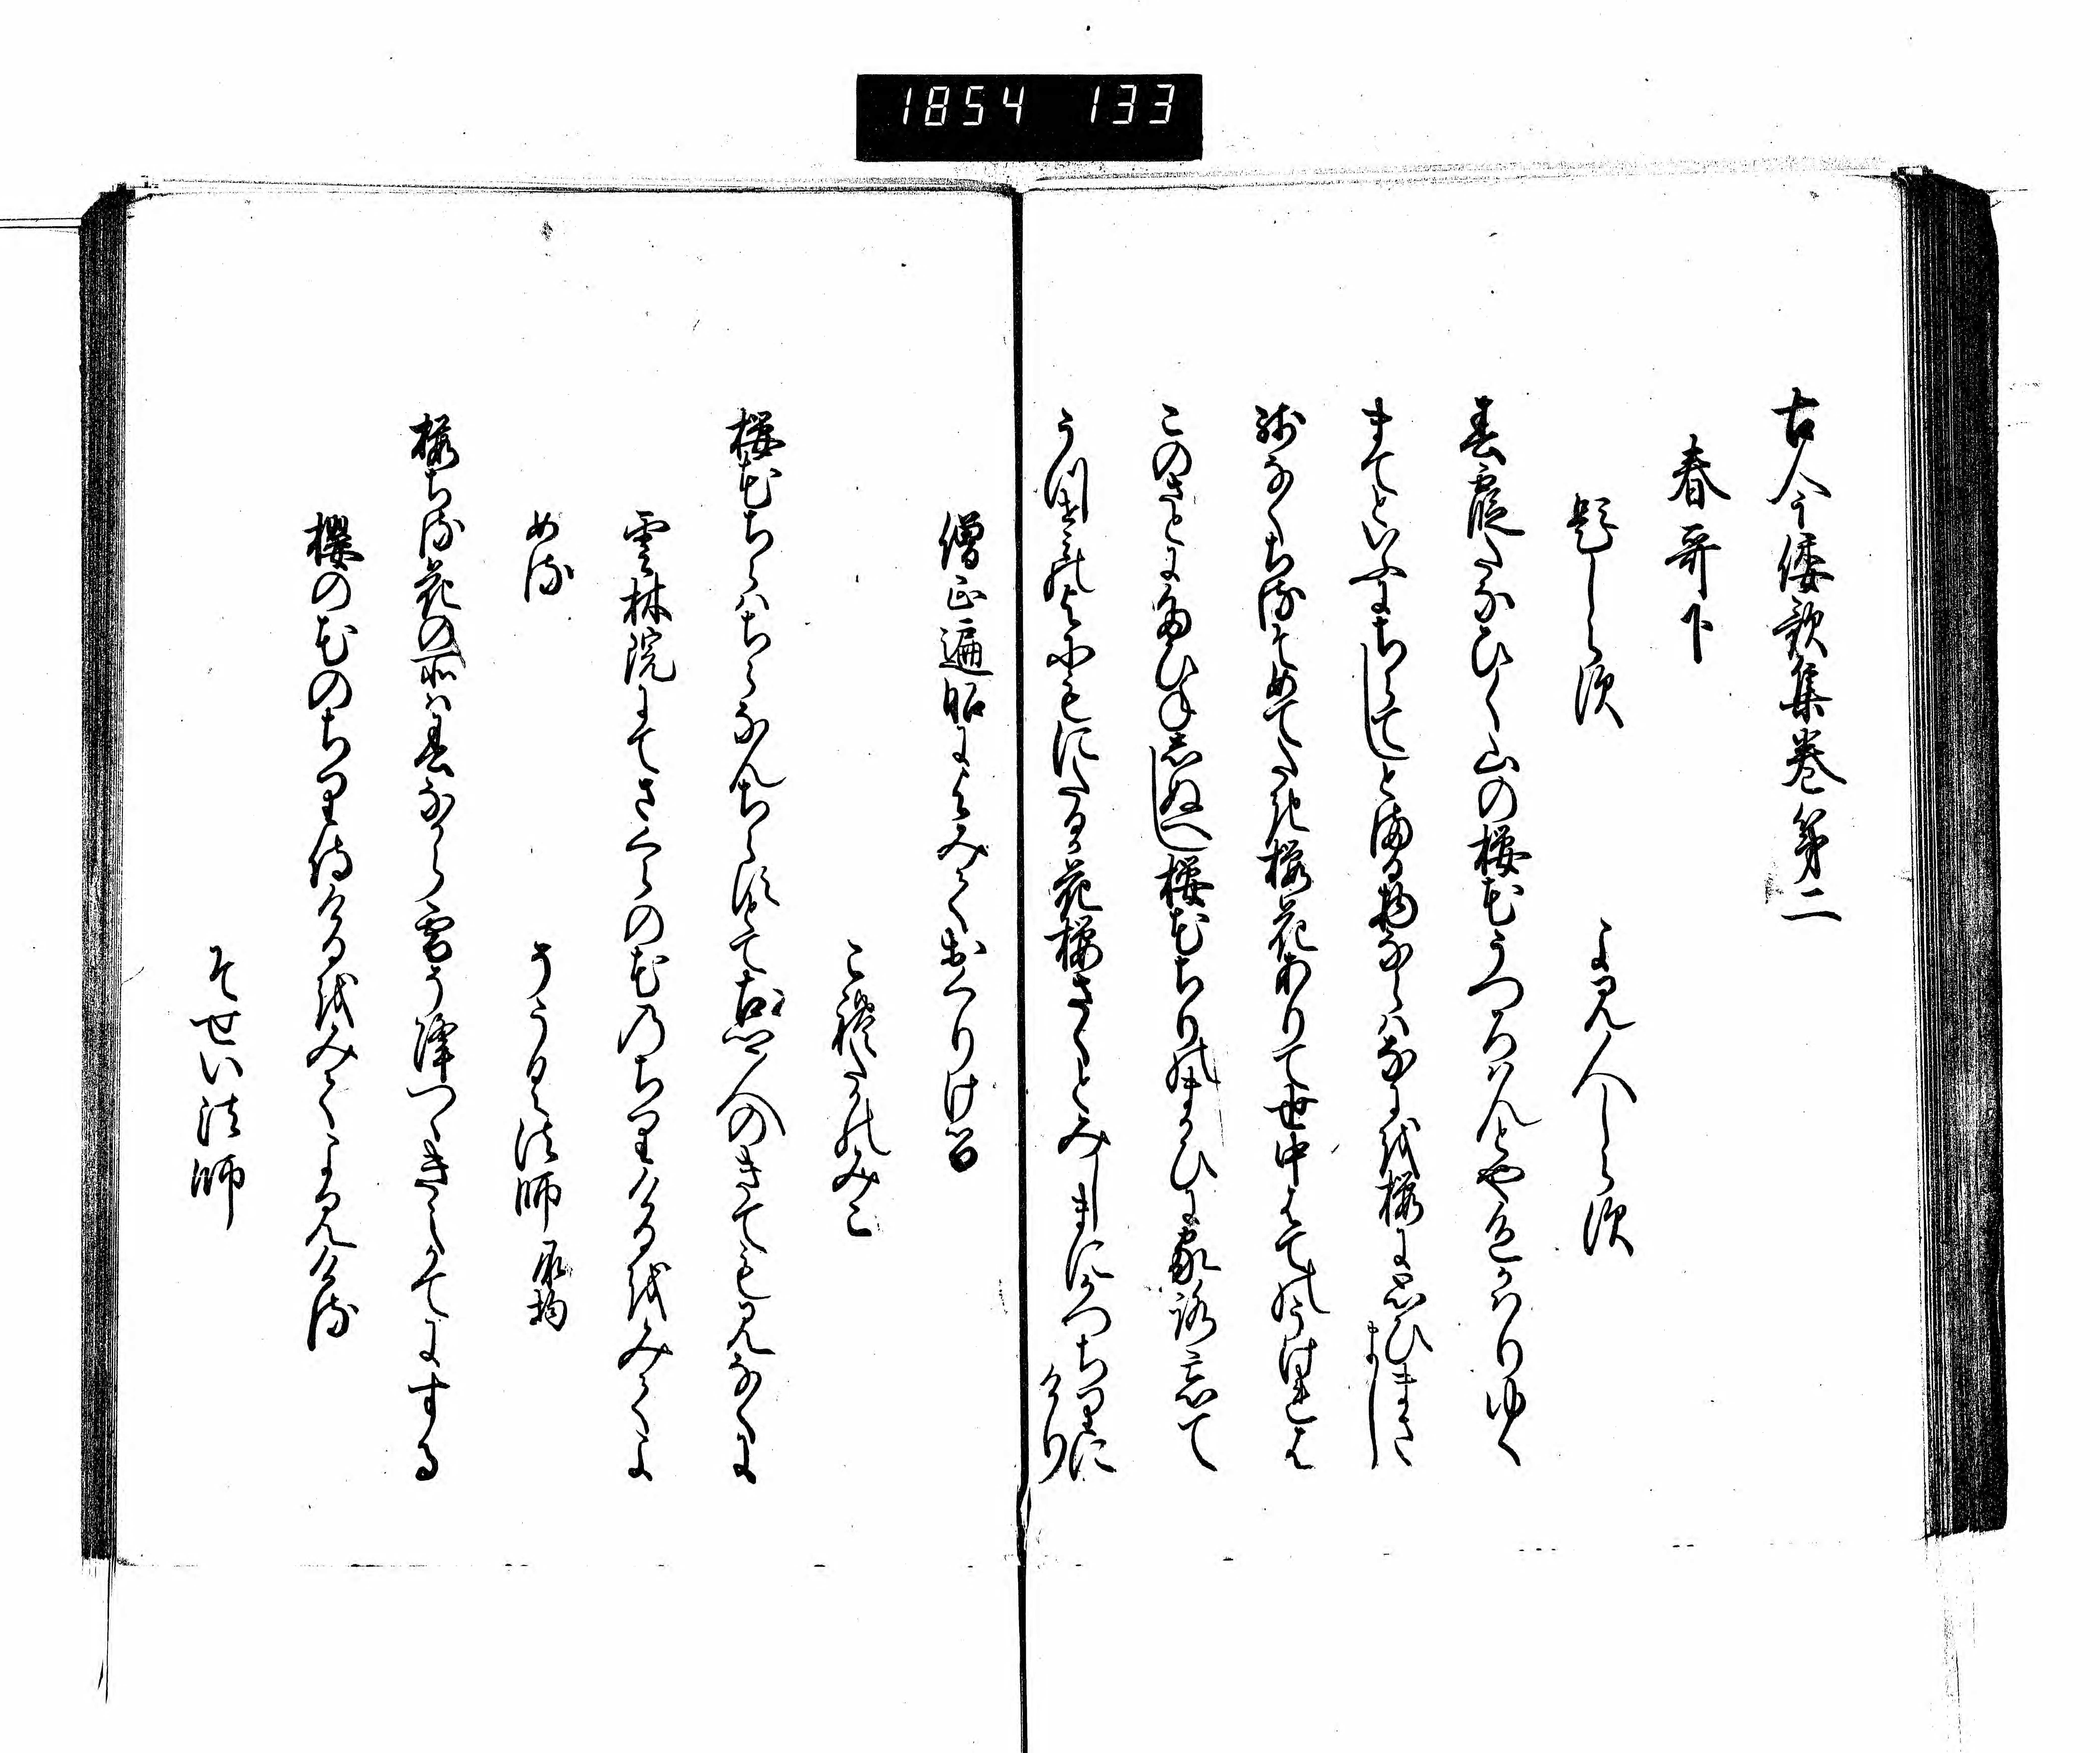 1854 133
古今倭歌集巻第二
春哥下
題しらす
よみ人しらす
春霞たなひく山の桜花うつろはんとや色かはりゆく
まてといふにちらてしとまる物ならはなにを桜に思ひまさまし
残なくちるそめてたき桜花ありて世中はてのうけれは
このさとにたひねしぬへし桜花ちりのまかひに家路忘て
うつせみの世にもにたるか花桜さくとみしまにかつちりにけり
僧正遍昭によみておくりける
これたかのみこ
桜花ちらはちらなんちらすとて古郷人のきても見なくに
雲林院にてさくらの花のちりけるをみてよ
める
そうく法師 承均
桜ちる花の所は春なから雪そ降つゝきえかてにする
櫻の花のちり侍けるをみてよみける
そせい法師